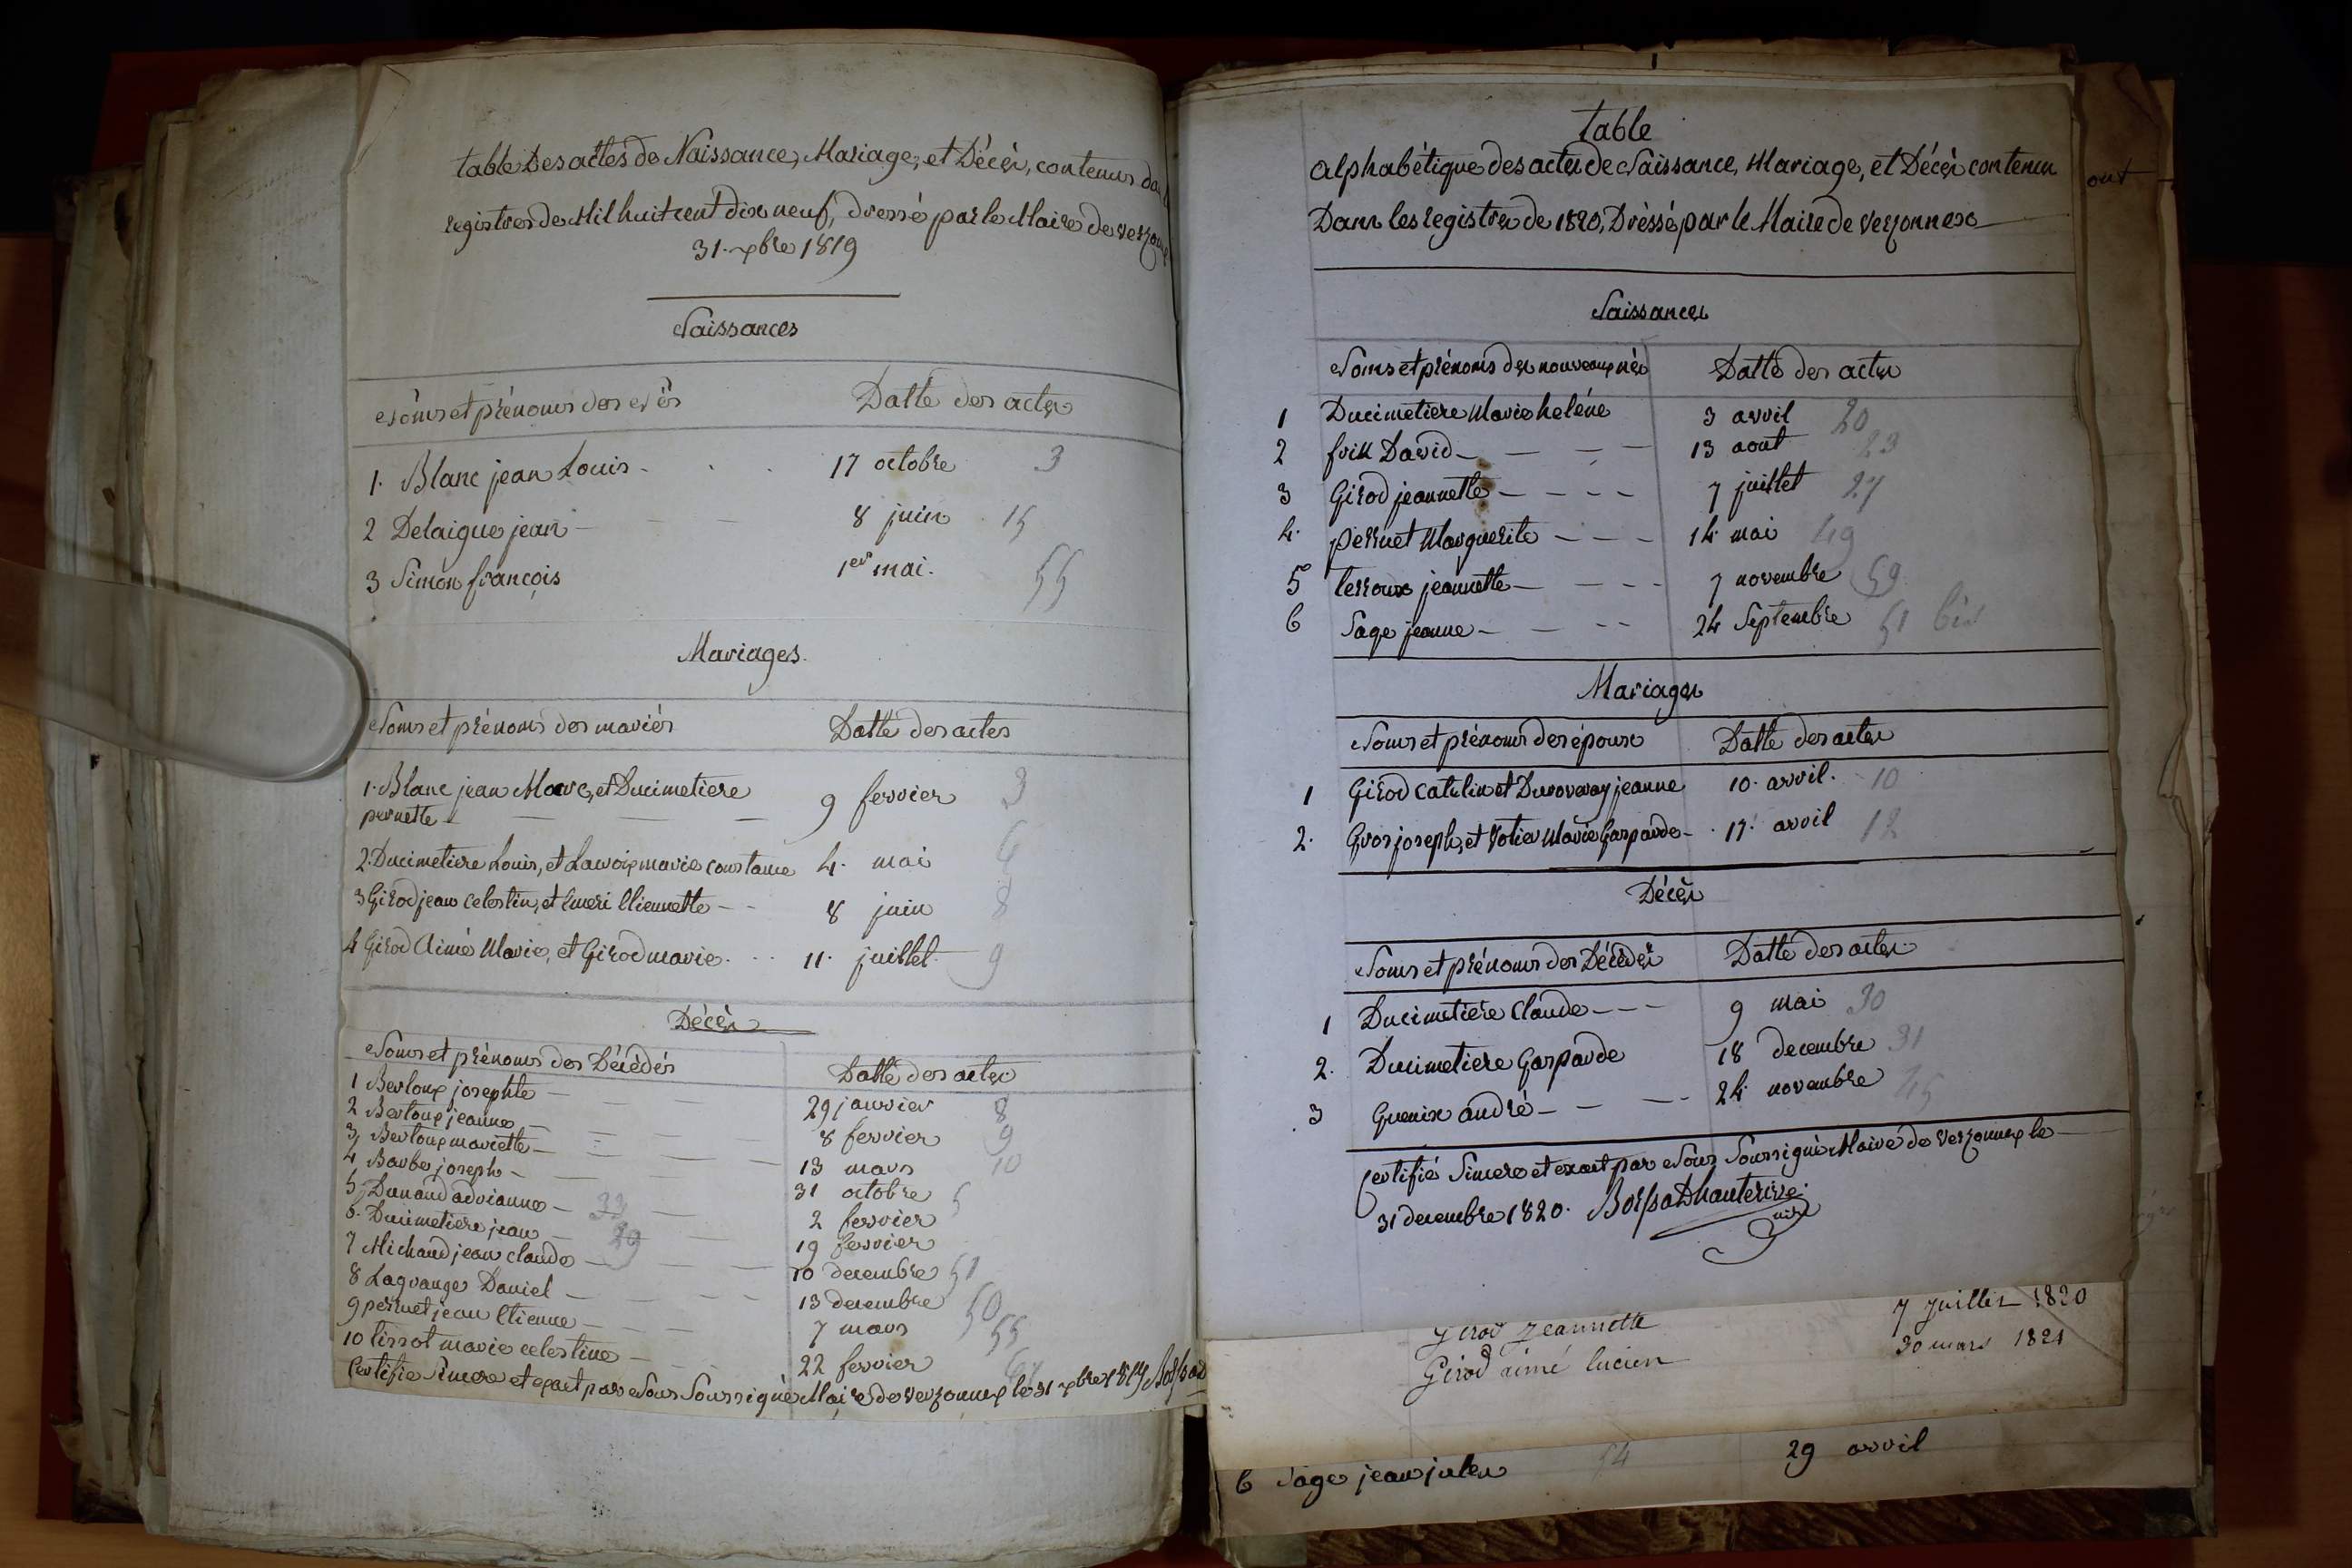 table Des actes de Naissance, Mariage, et Décès, contenus
registres de Mil huit cent dix neuf, dressé par le Maire de
31. xbre 1819
Naissances
Noms et prénoms des nés Datte des actes
1. Blanc jean Louis - 17 octobre 3
2 Delaigue jean - 8 juin 15
3 Simon françois 1er mai. 55
Mariages.
Noms et prénoms des mariés Datte des actes
1. Blanc jean Marc, et Ducimetiere
pernette - 9 fevrier 3
2. Ducimetiere Louis, et Lavoix marie constance 4. mai 6
3 Girod jean celestin, et Emeri Etiennette - - 8 juin 8
4 Girod Aimé Marie, et Girod marie. 11. juillet. 9
Décès
Noms et prénoms des Décédés Datte des actes
1 Berloux josephte - 29 janvier 8
2 Berloux jeanne - 8 fevrier 9
3 Berloux mariette - 13 mars 10
4 Barbe joseph - 31 octobre 5
5 Dunand adrianne - 33 2 fevrier
6. Ducimetiere jean - 29 19 fevrier
7 Michaud jean claude - 10 decembre 51
8 Lagrange Daniel - 13 decembre 50
9 pernet jean Etienne - 7 mars 55
10 tissot marie celestine - 22 fevrier
Certifié sincere et exact par Nous Soussigné Maire de Verzonnex le 31 xbre 1819
table
alphabétique des actes de Naissance, Mariage, et Décès contenus
Dans les registres de 1820, Dréssé par le Maire de Verzonnex
Naissances
Noms et prénoms des nouveaux nés Datte des actes
1 Ducimetiere Marie heléne 3 avril 20
2 frik David - 13 aout 23
3 Girod jeannette - 7 juillet 27
4. pernet Marguerite - 14 mai 49
5 terroux jeannette - 7 novembre 59
6 Sage jeanne - 24 Septembre 51 bis
Mariages
Noms et prénoms des époux Datte des actes
1 Girod catelin et Duroveray jeanne 10. avril. 10
2. Gros joseph, et Votier Marie Gasparde - 17. avril 12
Décès
Noms et prénoms des Décédés Datte des actes
1 Ducimetiere Claude - 9 mai 30
2. Ducimetiere Gasparde 18 decembre 31
3 Guenix andré - 24 novembre 45
Certifié Sincere et exact par Nous Soussigné Maire de Verzonnex le
31 decembre 1820.
Girod Jeannette 7 Juillet 1820
Girod aimé lucien 30 mars 1821
6 Sage jean jules 54 29 avril